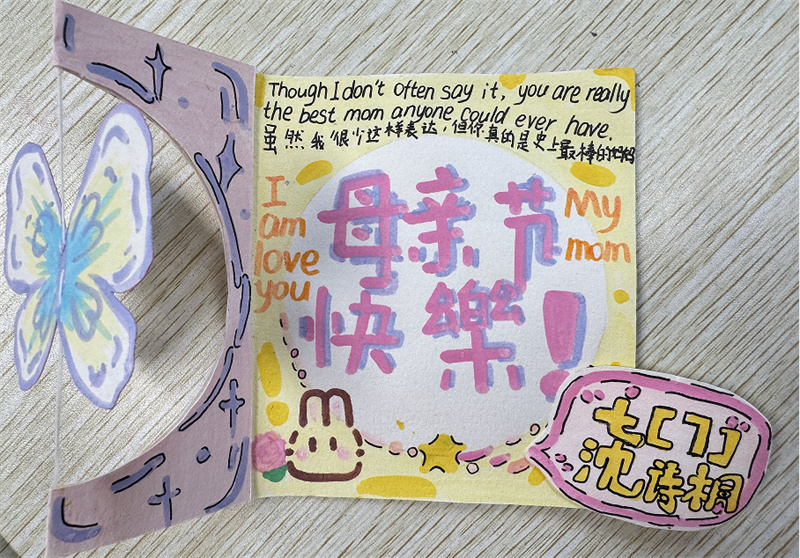 Though I don't often say it, you are really
the best mom anyone could ever have.
虽然我很少这样表达,但你真的是史上最棒的妈妈
I
am
love
you
母亲节
快樂!
My
mom
七[7]
沈诗桐